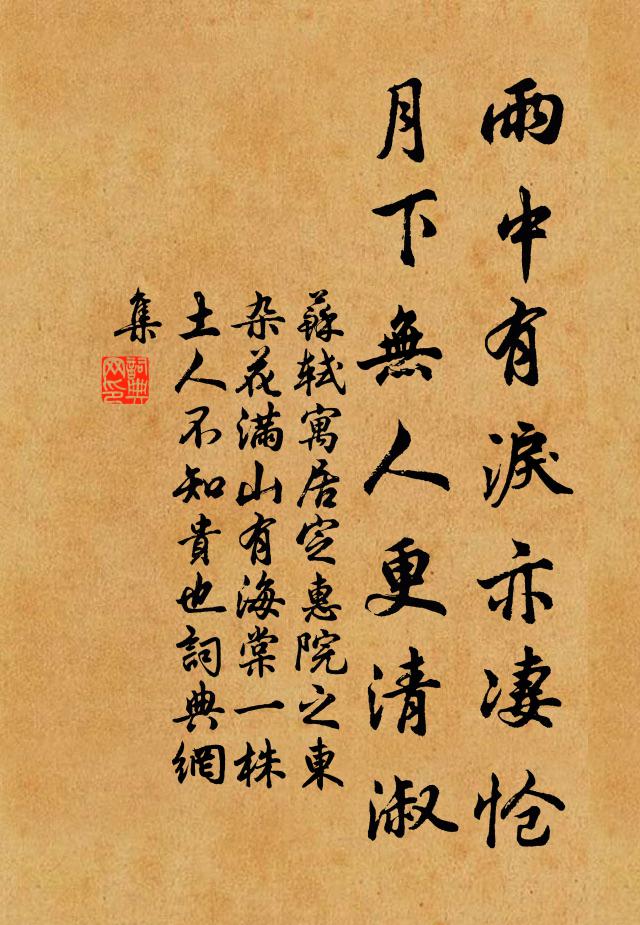 雨中有淚亦凄怆
月下無人更清淑
蘇軾寓居定惠院之東
杂花滿山有海棠一株
土人不知貴也詞典網
集
詞典
网印